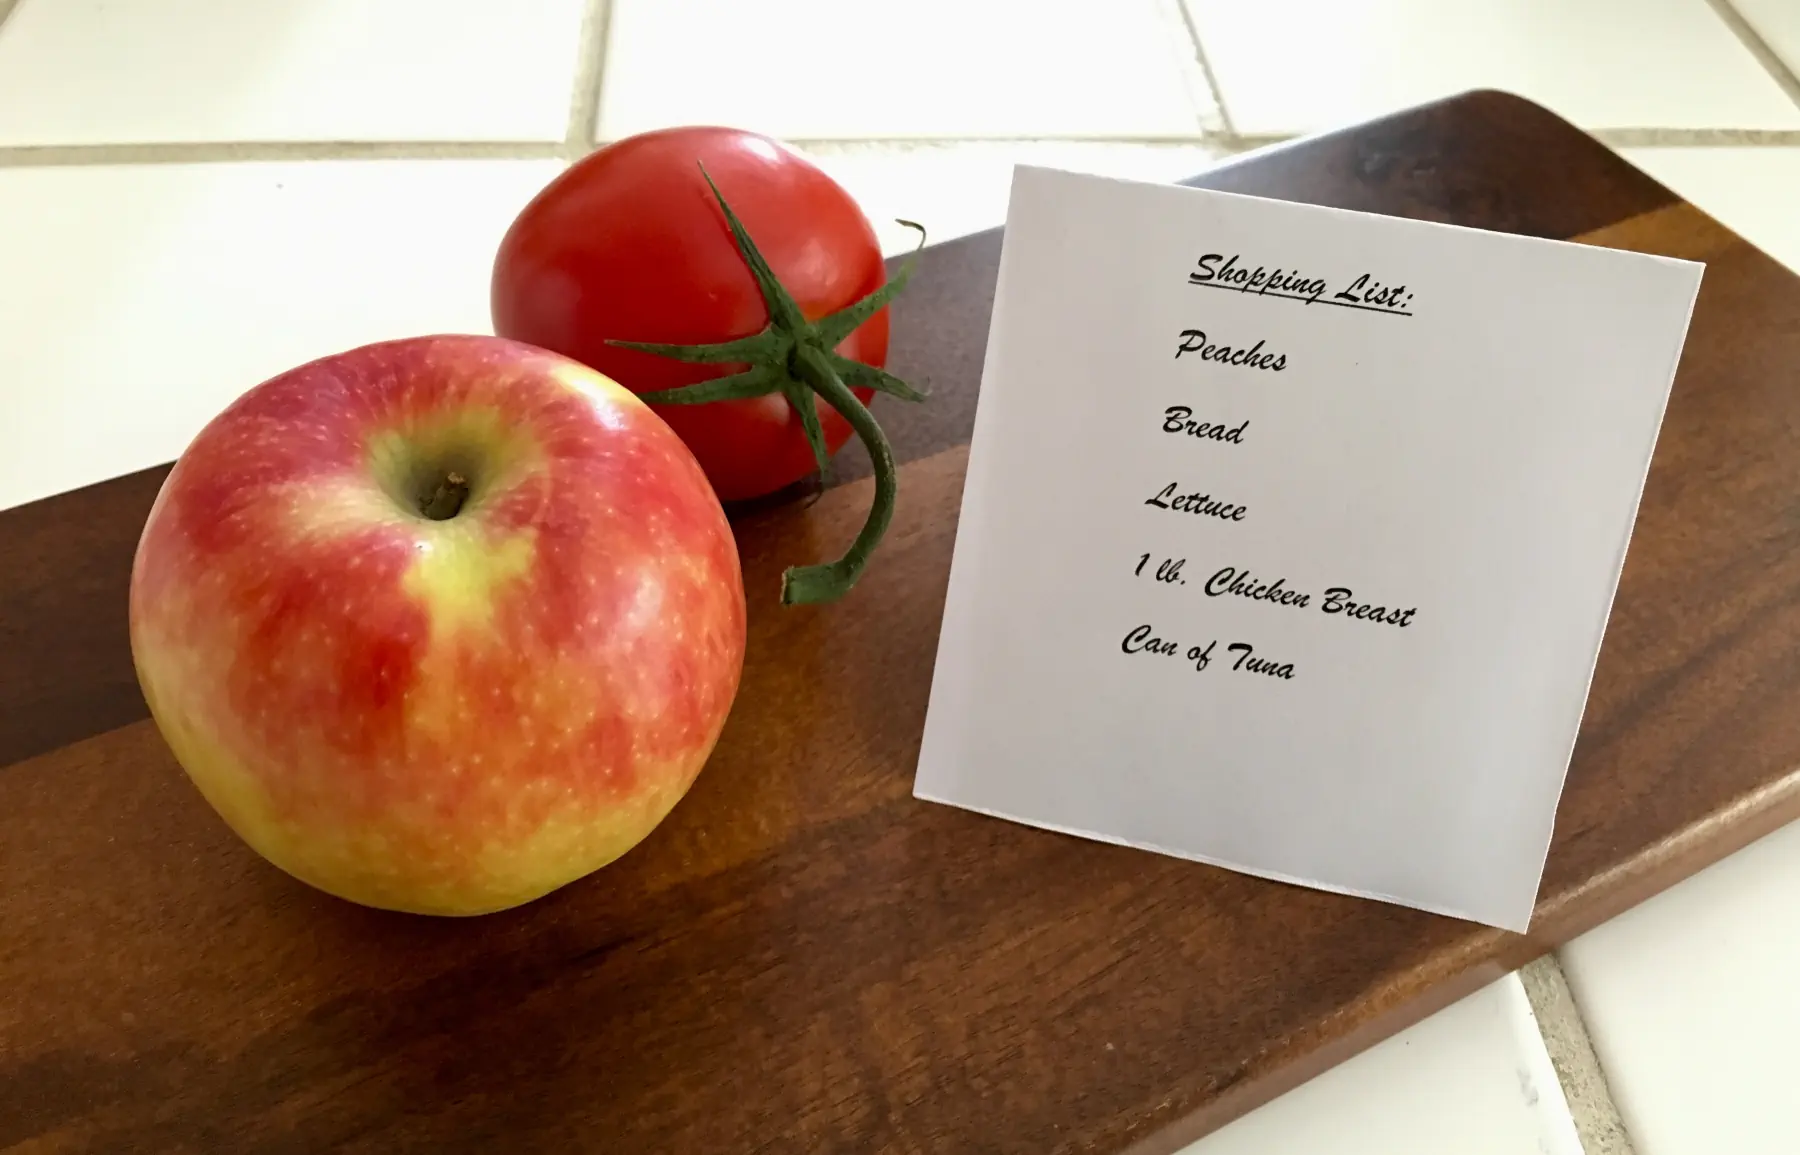 Shopping List:
Peaches
Bread
Lettuce
1 lb. Chicken Breast
Can of Tuna